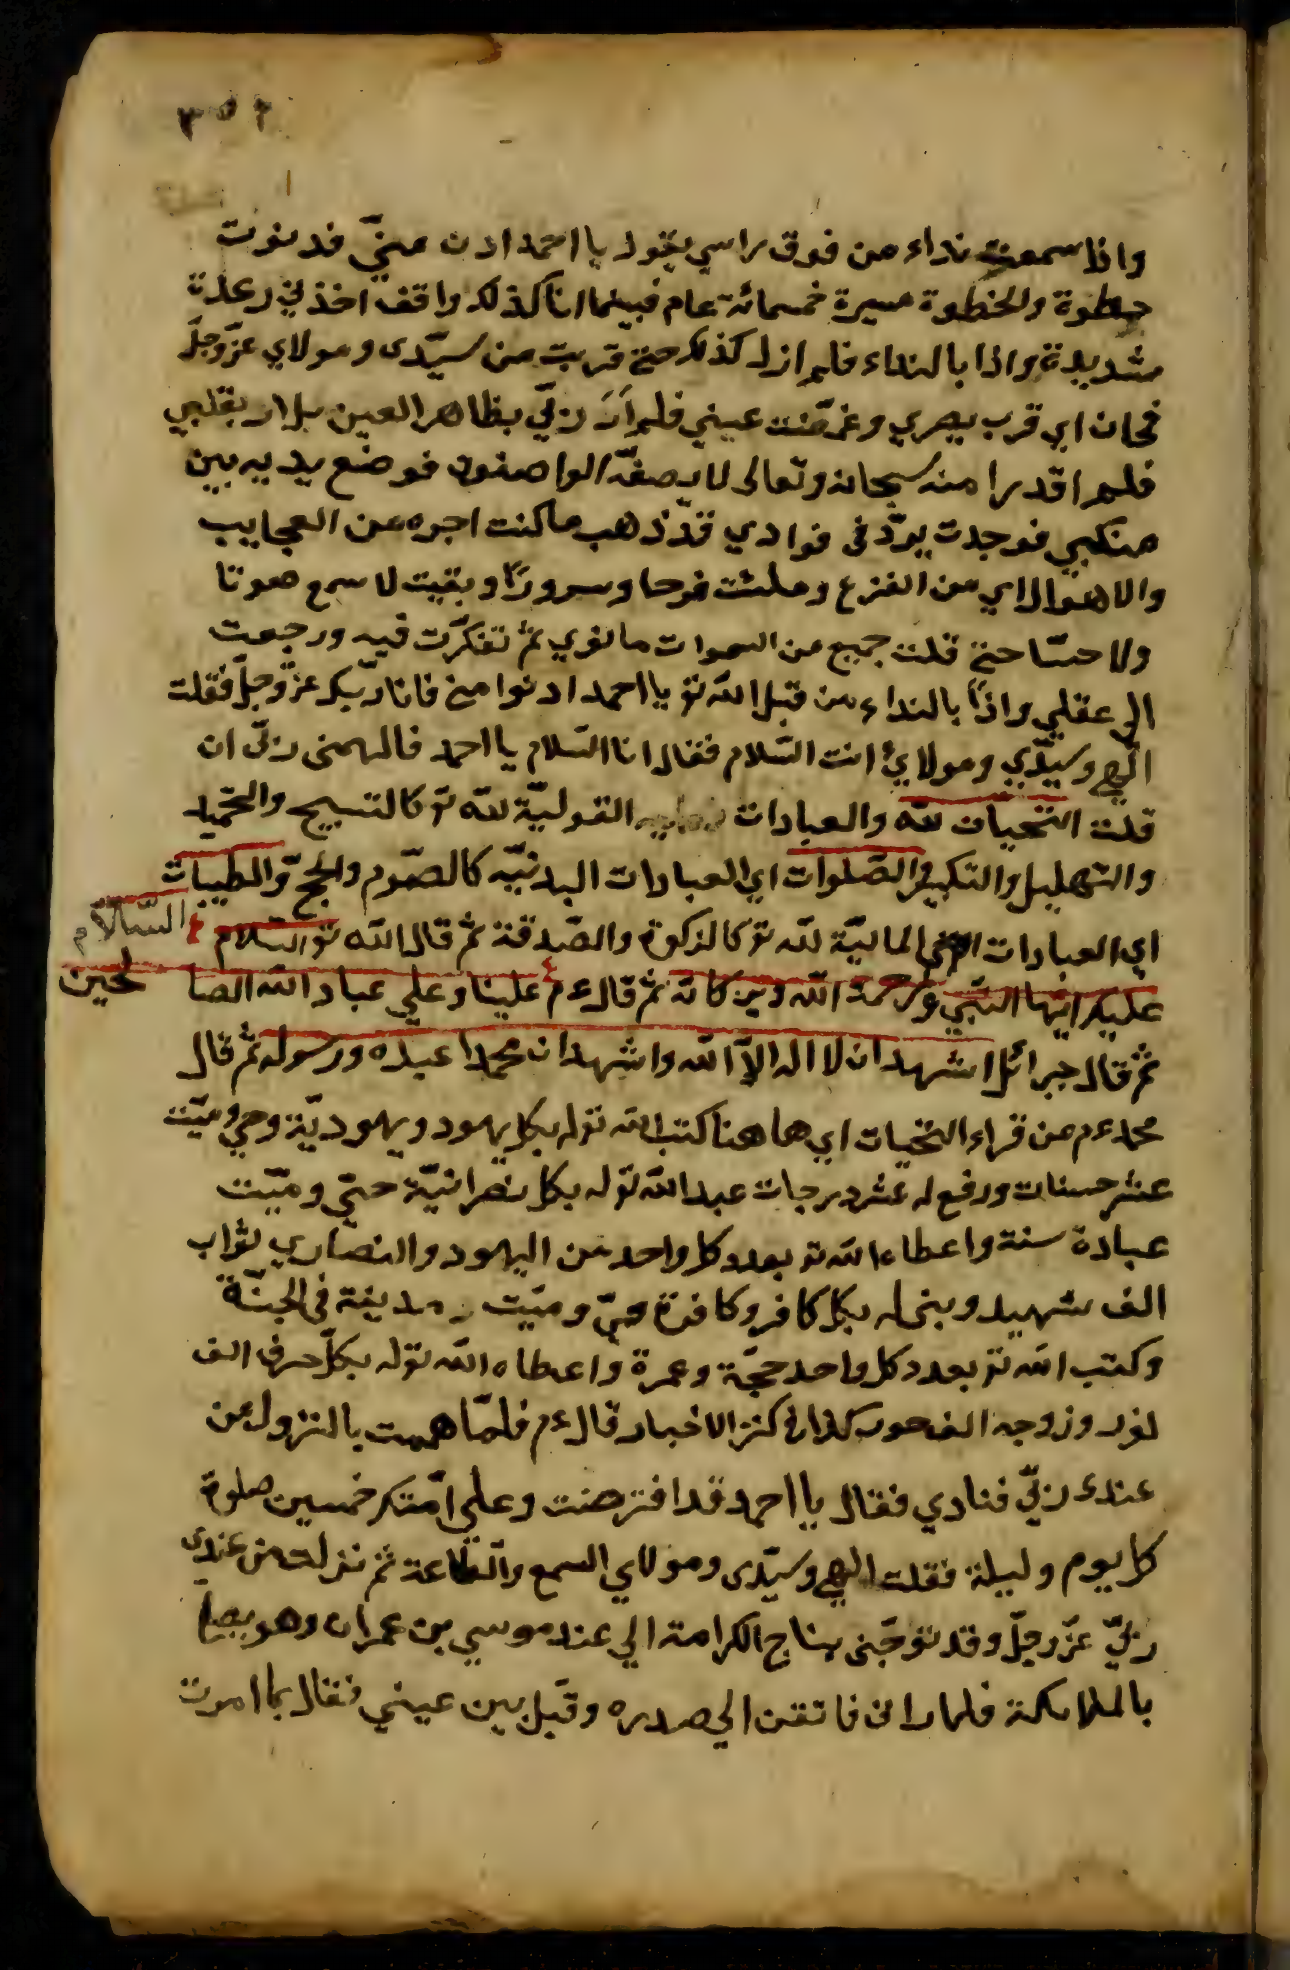 واذا سمعت نداء من فوق راسي يقول يا احمد ادن منيّ فدنوت
خطوة والخطوة مسيرة خمسمائة عام فبينما انا كذلك واقف اخذني رعدة
شديدة واذا بالنداء فلم ازل كذلك حتى قربت من سيّدى ومولاي عزّ وجلّ
فحان اي قرب بصري وغمّضت عيني فلم اَرَ ربّي بظاهر العين بل ار بقلبي
فلم اقدر امنه سبحانه وتعالى لا يصفه الواصفون فوضع يديه بين
منكبي فوجدت برد فى فوادي قد ذهب ما كنت اجره من العجايب
والاهوال اي من الفزع وملئت فرحا وسرورًا وبقيت لا سمع صوتا
ولا حسّا حتى قلت جميع من السموات ما نوي ثم تفكرّت فيه ورجعت
الى عقلي واذًا بالنداء من قبل الله تع يا احمد ادنوا مني فانا ربّك عزّ وجلّ فقلت
الهي وسيّدي ومولاي انت السّلام فقال انا السّلام يا احمد فالهمنى ربّى ان
قلت التحيات لله والعبادات القوليّة لله تع كالتسبيح والتحميد
والتهليل والتكبير والصّلوات اي العبادات البدنيّه كالصّوم والحجّ والطيبات
اي العبادات المالية لله تع كالزكوة والصّدقة ثم قال الله تع السلام السّلام
عليك ايّها النّبي ورحمة الله وبركاته ثم قال عم علينا وعلي عباد الله الصالحين
ثم قال جبرائل اشهد ان لا اله الاّ الله واشهد ان محمدا عبده ورسوله ثم قال
محمد عم من قراء التحيات اي ها هنا كتب الله تع له بكل يهود ويهوديّة وحي وميّت
عشر حسنات ورفع له عشر درجات عبد الله تع له بكل نصرانيّة حيّ وميّت
عبادة سنة واعطاه الله تع بعدد كل واحد من اليهود والنصارى ثواب
الف شهيد وبنى له بكل كافر وكافرة حيّ وميّت مدينة فى الجنّة
وكتب الله تع بعدد كل واحد حجّة وعمرة واعطاه الله تع له بكلّ حرف الف
نور وزوجه الف حور كذا في كنز الاخبار قال عم فلمّا هممت بالنزول من
عند ربّي فنادي فقال يا احمد قد افترضت وعلى امّتك خمسين صلوة
كل يوم وليلة فقلت الهي وسيّدى ومولاي السمع والطاعة ثم نزلت من عندى
ربّي عزّ وجلّ وقد توّجنى بتاج الكرامة الي عند موسي بن عمران وهو يصلّ
بالملائكة فلما رانى فاتقن الي صدره وقبّل بين عيني فقال بما امرت